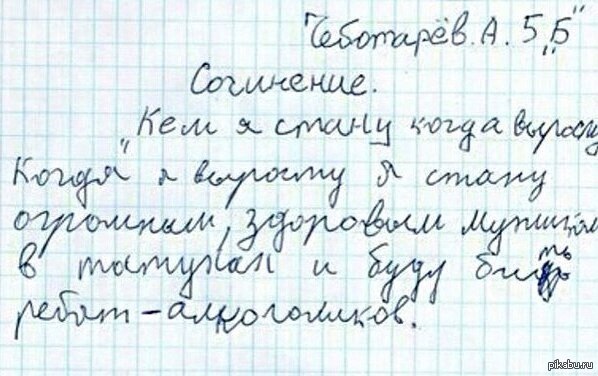 Чеботарёв. А. 5 „Б"
Сочинение.
„Кем я стану когда вырасту
Когда" я вырасту я стану
огромным, здоровым мужиком
в татухах и буду бить
ребят-алкоголиков.
pikabu.ru